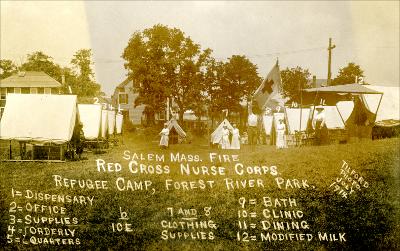 SALEM MASS. FIRE
RED CROSS NURSE CORPS
REFUGEE CAMP, FOREST RIVER PARK.
1= DISPENSARY
2= OFFICE
3= SUPPLIES
4= ORDERLY
5= QUARTERS
6
ICE
7 AND 8
CLOTHING
SUPPLIES
9= BATH
10= CLINIC
11= DINING
12= MODIFIED MILK
PHOTO